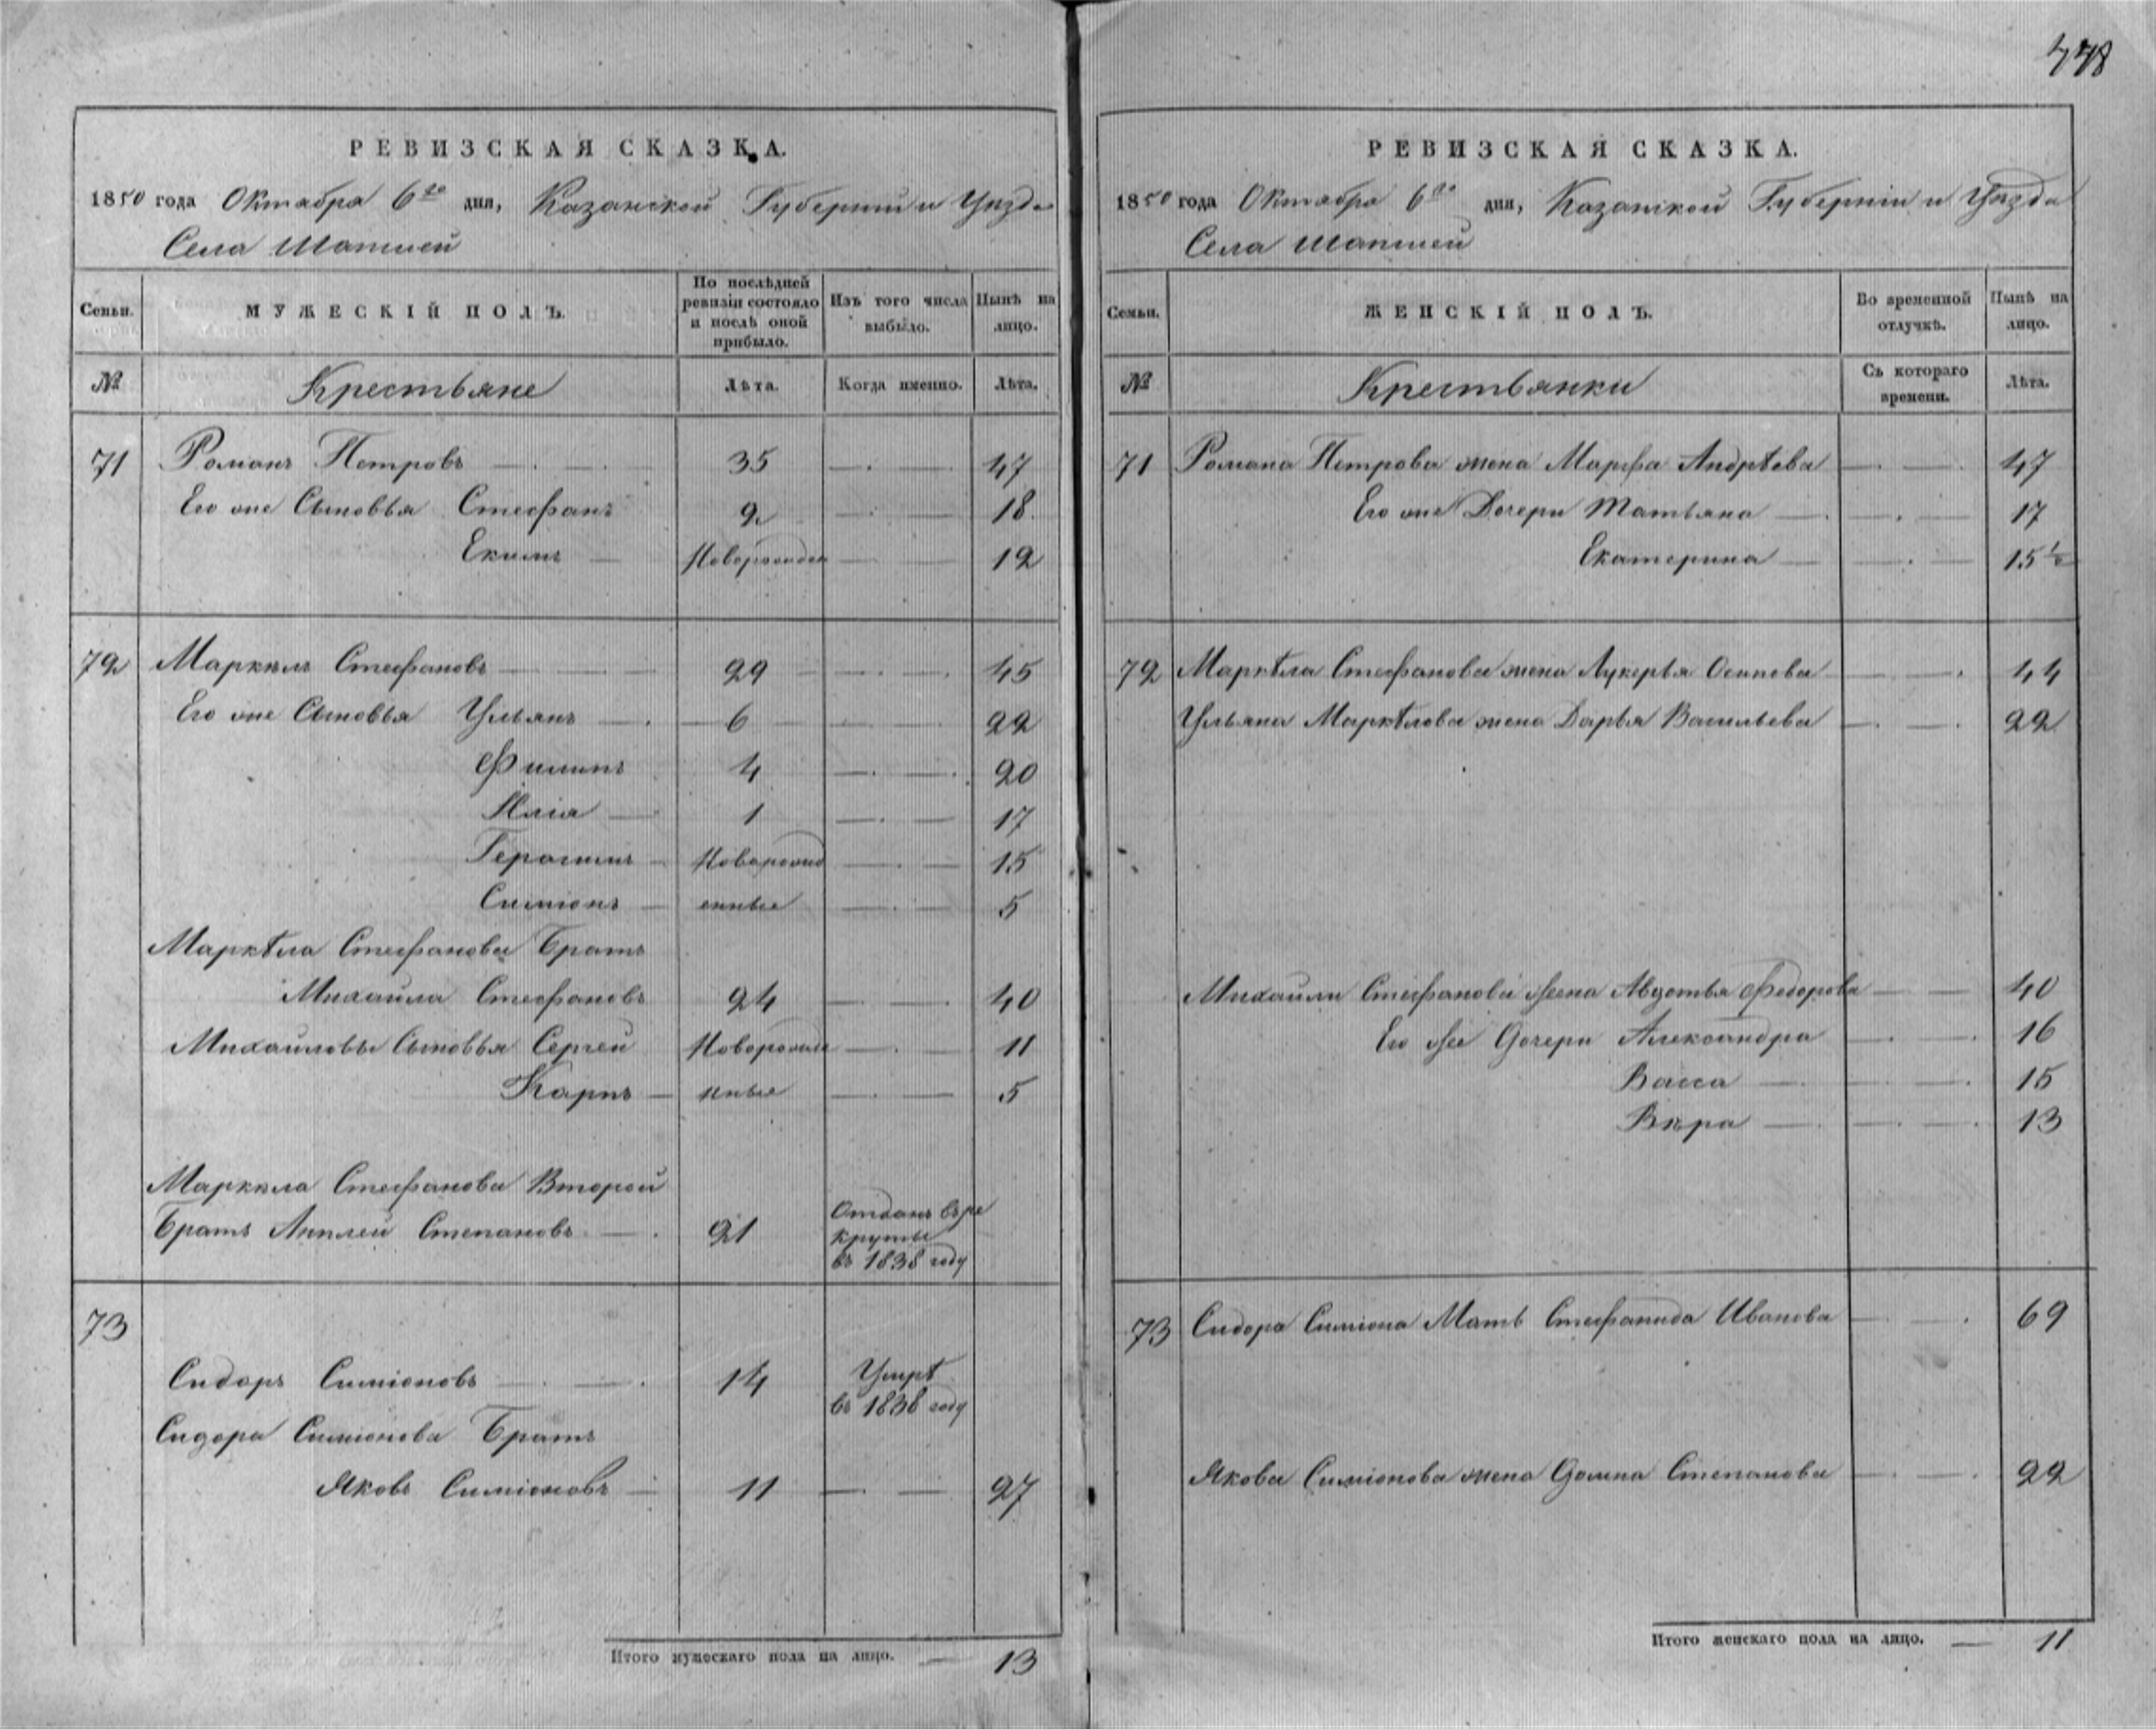 778
РЕВИЗСКАЯ СКАЗКА.
1850 года Октября 6го дня, Казанской Губернии и Уѣзда
Села Шапшей
Семьи. МУЖЕСКІЙ ПОЛЪ. По послѣдней ревизіи состояло и послѣ оной прибыло. Изъ того числа выбыло. Нынѣ на лицо.
№ Крестьяне Лѣта. Когда именно. Лѣта.
71 Романъ Петровъ 35 47
Его же Сыновья Стефанъ 9 18
Екимъ Новорожден 12
72 Маркѣлъ Стефановъ 29 45
Его же Сыновья Ульянъ 6 22
Филипъ 4 20
Илія 1 17
Герасимъ Новорожд 15
Симіонъ енные 5
Маркѣла Стефанова Братъ
Михайла Стефановъ 24 40
Михайловы Сыновья Сергей Новорожде 11
Карпъ нные 5
Маркѣла Стефанова Второй
Братъ Степановъ 21 Отданъ въ ре
круты
въ 1838 году
73
Сидоръ Симіоновъ 14 Умрѣ
въ 1838 году
Сидора Симіонова Братъ
Яковъ Симіоновъ 11 27
Итого мужескаго пола на лицо. 13
РЕВИЗСКАЯ СКАЗКА.
1850 года Октября 6го дня, Казанской Губерніи и Уѣзда
Села Шапшей
Семьи. ЖЕНСКІЙ ПОЛЪ. Во временной отлучкѣ. Нынѣ на лицо.
№ Крестьянки Съ котораго времени. Лѣта.
71 Романа Петрова жена Марфа Андрѣева 47
Его же Дочери Татьяна 17
Екатерина 15½
72 Маркѣла Стефанова жена Лукерья Осипова 44
Ульяна Маркѣлова жена Дарья Васильева 22
Михайли Стефанова жена Авдотья Федорова 40
Его же Дочери Александра 16
Васса 15
Вѣра 13
73 Сидора Симіона Мать Стефанида Иванова 69
Якова Симіонова жена Домна Степанова 22
Итого женскаго пола на лицо. 11